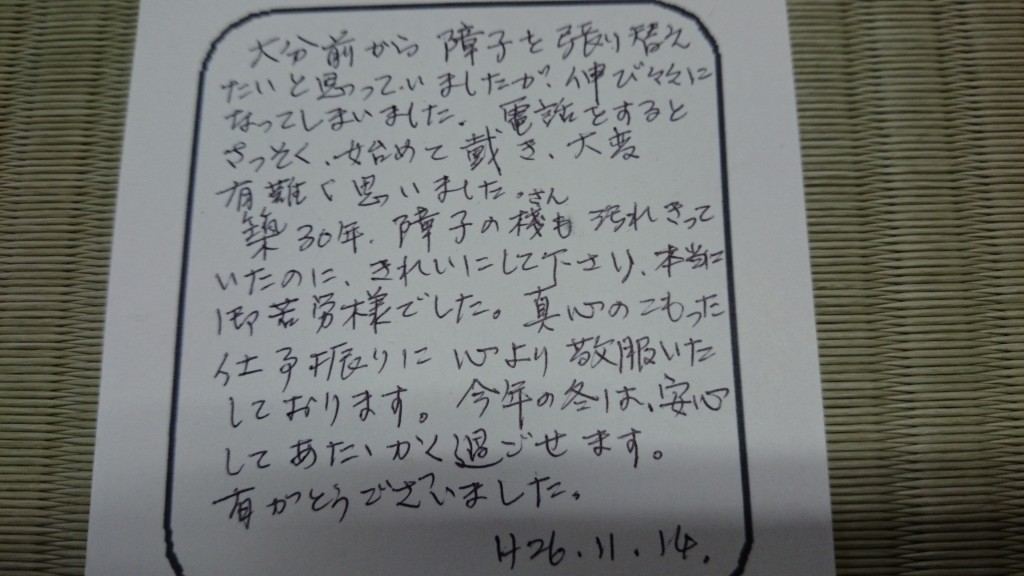 大分前から障子を張り替え
たいと思っていましたが、伸び々々に
なってしまいました。電話をすると
さっそく、始めて戴き、大変
有難く思いました。
築30年、障子の桟(さん)も汚れきって
いたのに、きれいにして下さり、本当に
御苦労様でした。真心のこもった
仕事振りに心より敬服いた
しております。今年の冬は、安心
してあたたかく過ごせます。
有がとうございました。
H26.11.14.